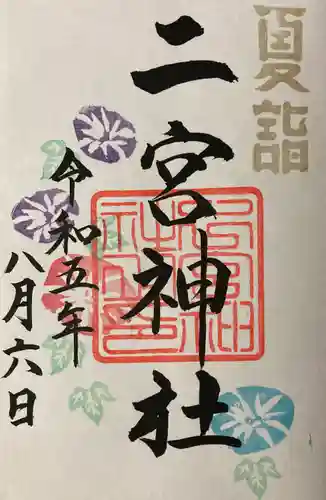 夏詣
二宮神社
令和五年
八月六日